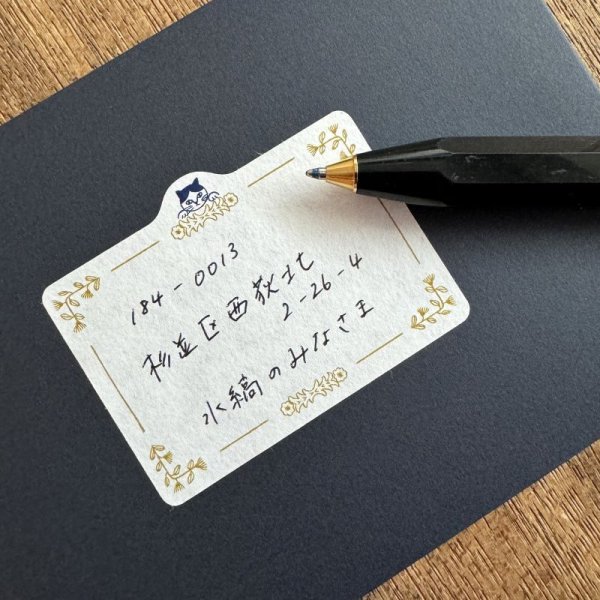 184-0013
杉並区西荻北
2-26-4
水縞のみなさま